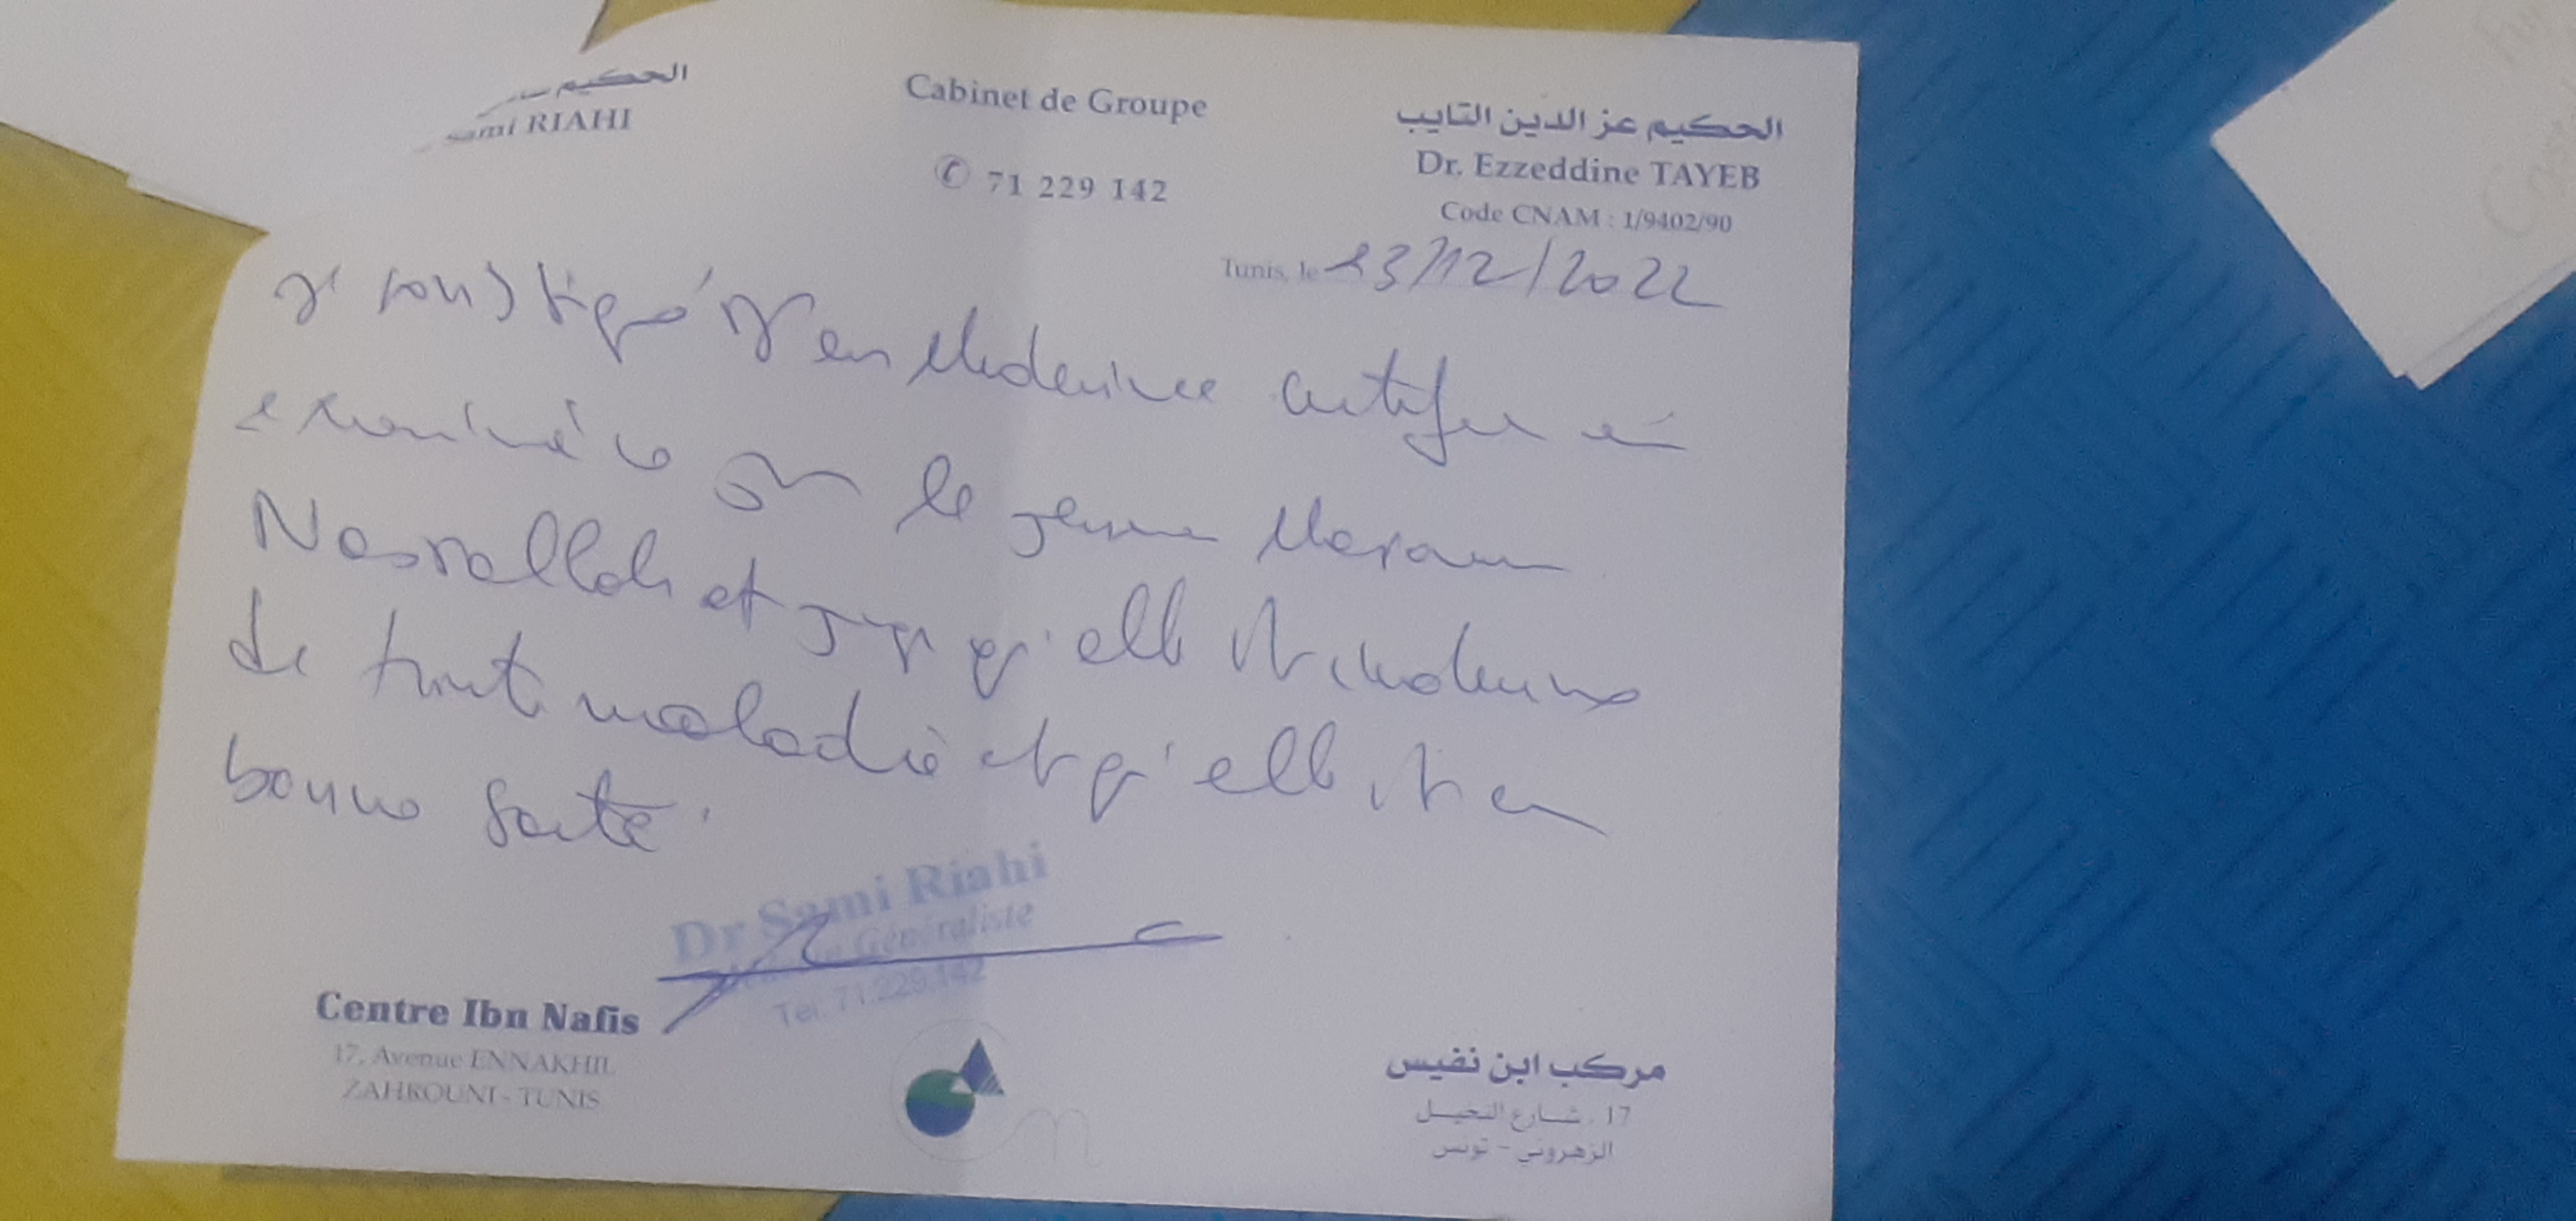 الحكيم
Sami RIAHI
Cabinet de Groupe
71 229 142
الحكيم عز الدين التايب
Dr. Ezzeddine TAYEB
Code CNAM : 1/9402/90
Tunis, le 23/12/2022
en Medecine certifie
examiné ce le jeune
Nasrallah et qu'elle est indemne
de toute maladie et qu'elle est en
bonne santé.
Dr Sami Riahi
Médecin Généraliste
Tel. 71.229.142
Centre Ibn Nafis
17, Avenue ENNAKHIL
ZAHROUNI - TUNIS
مركب ابن نفيس
17 . شارع النخيل
الزهروني - تونس